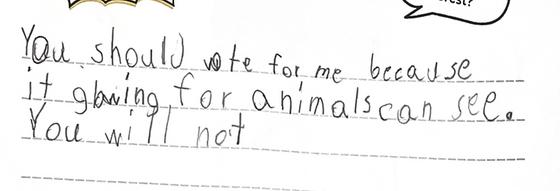 rest?
You should vote for me because
it glowing for animals can see.
You will not